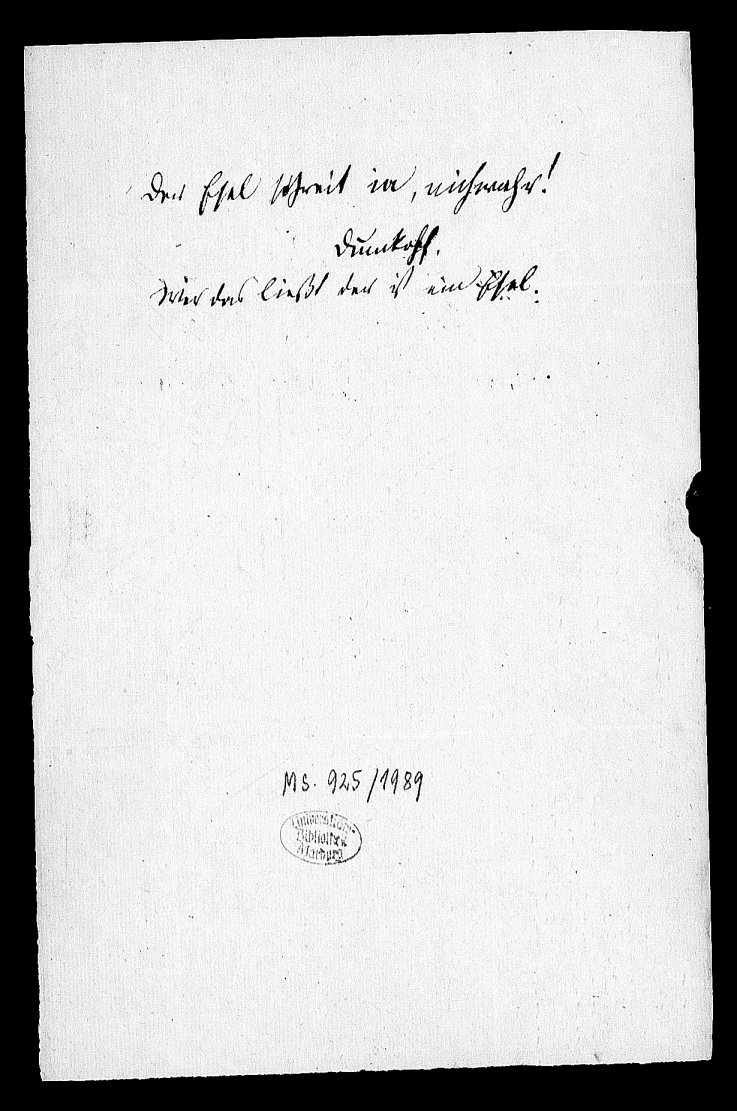 Der Esel schreit ia, nichwahr!
Dumkopf.
Wer das ließt der ist ein Esel.
Ms. 925/1989
Universitäts-
Bibliothek
Marburg